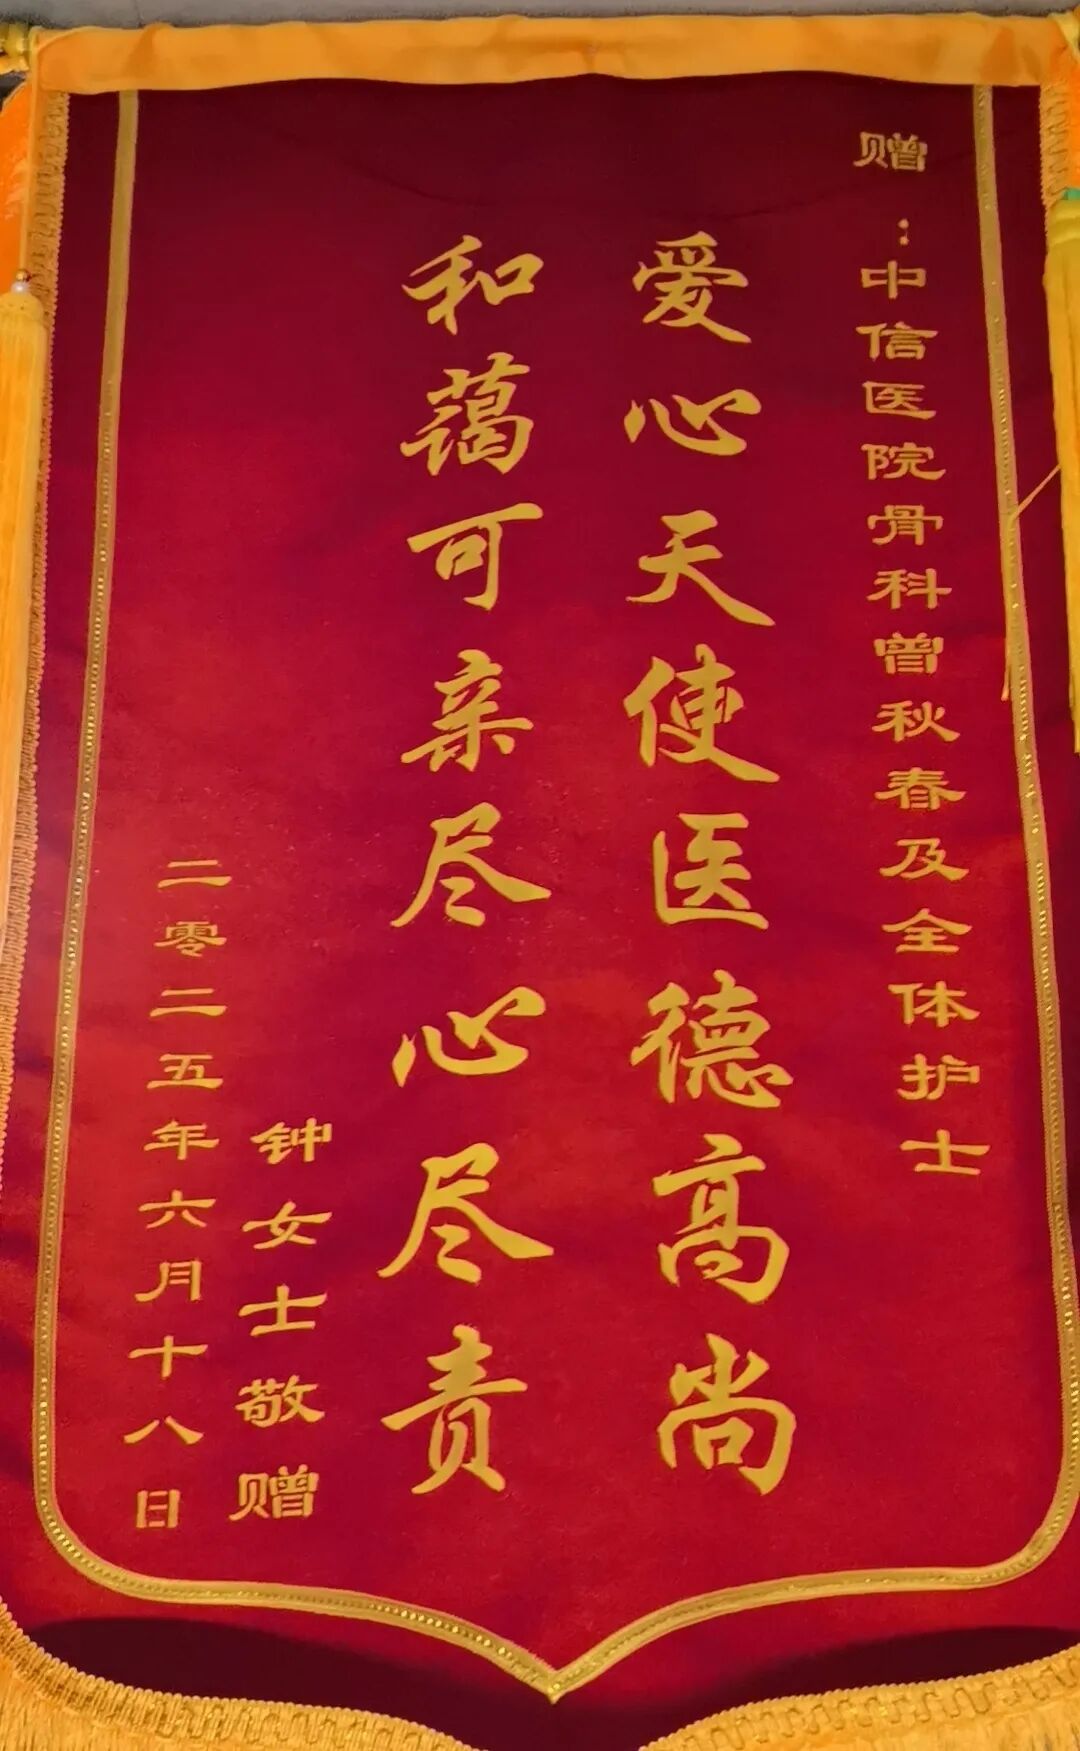 赠：中信医院骨科曾秋春及全体护士
爱心天使医德高尚
和蔼可亲尽心尽责
钟女士敬赠
二零二五年六月十八日